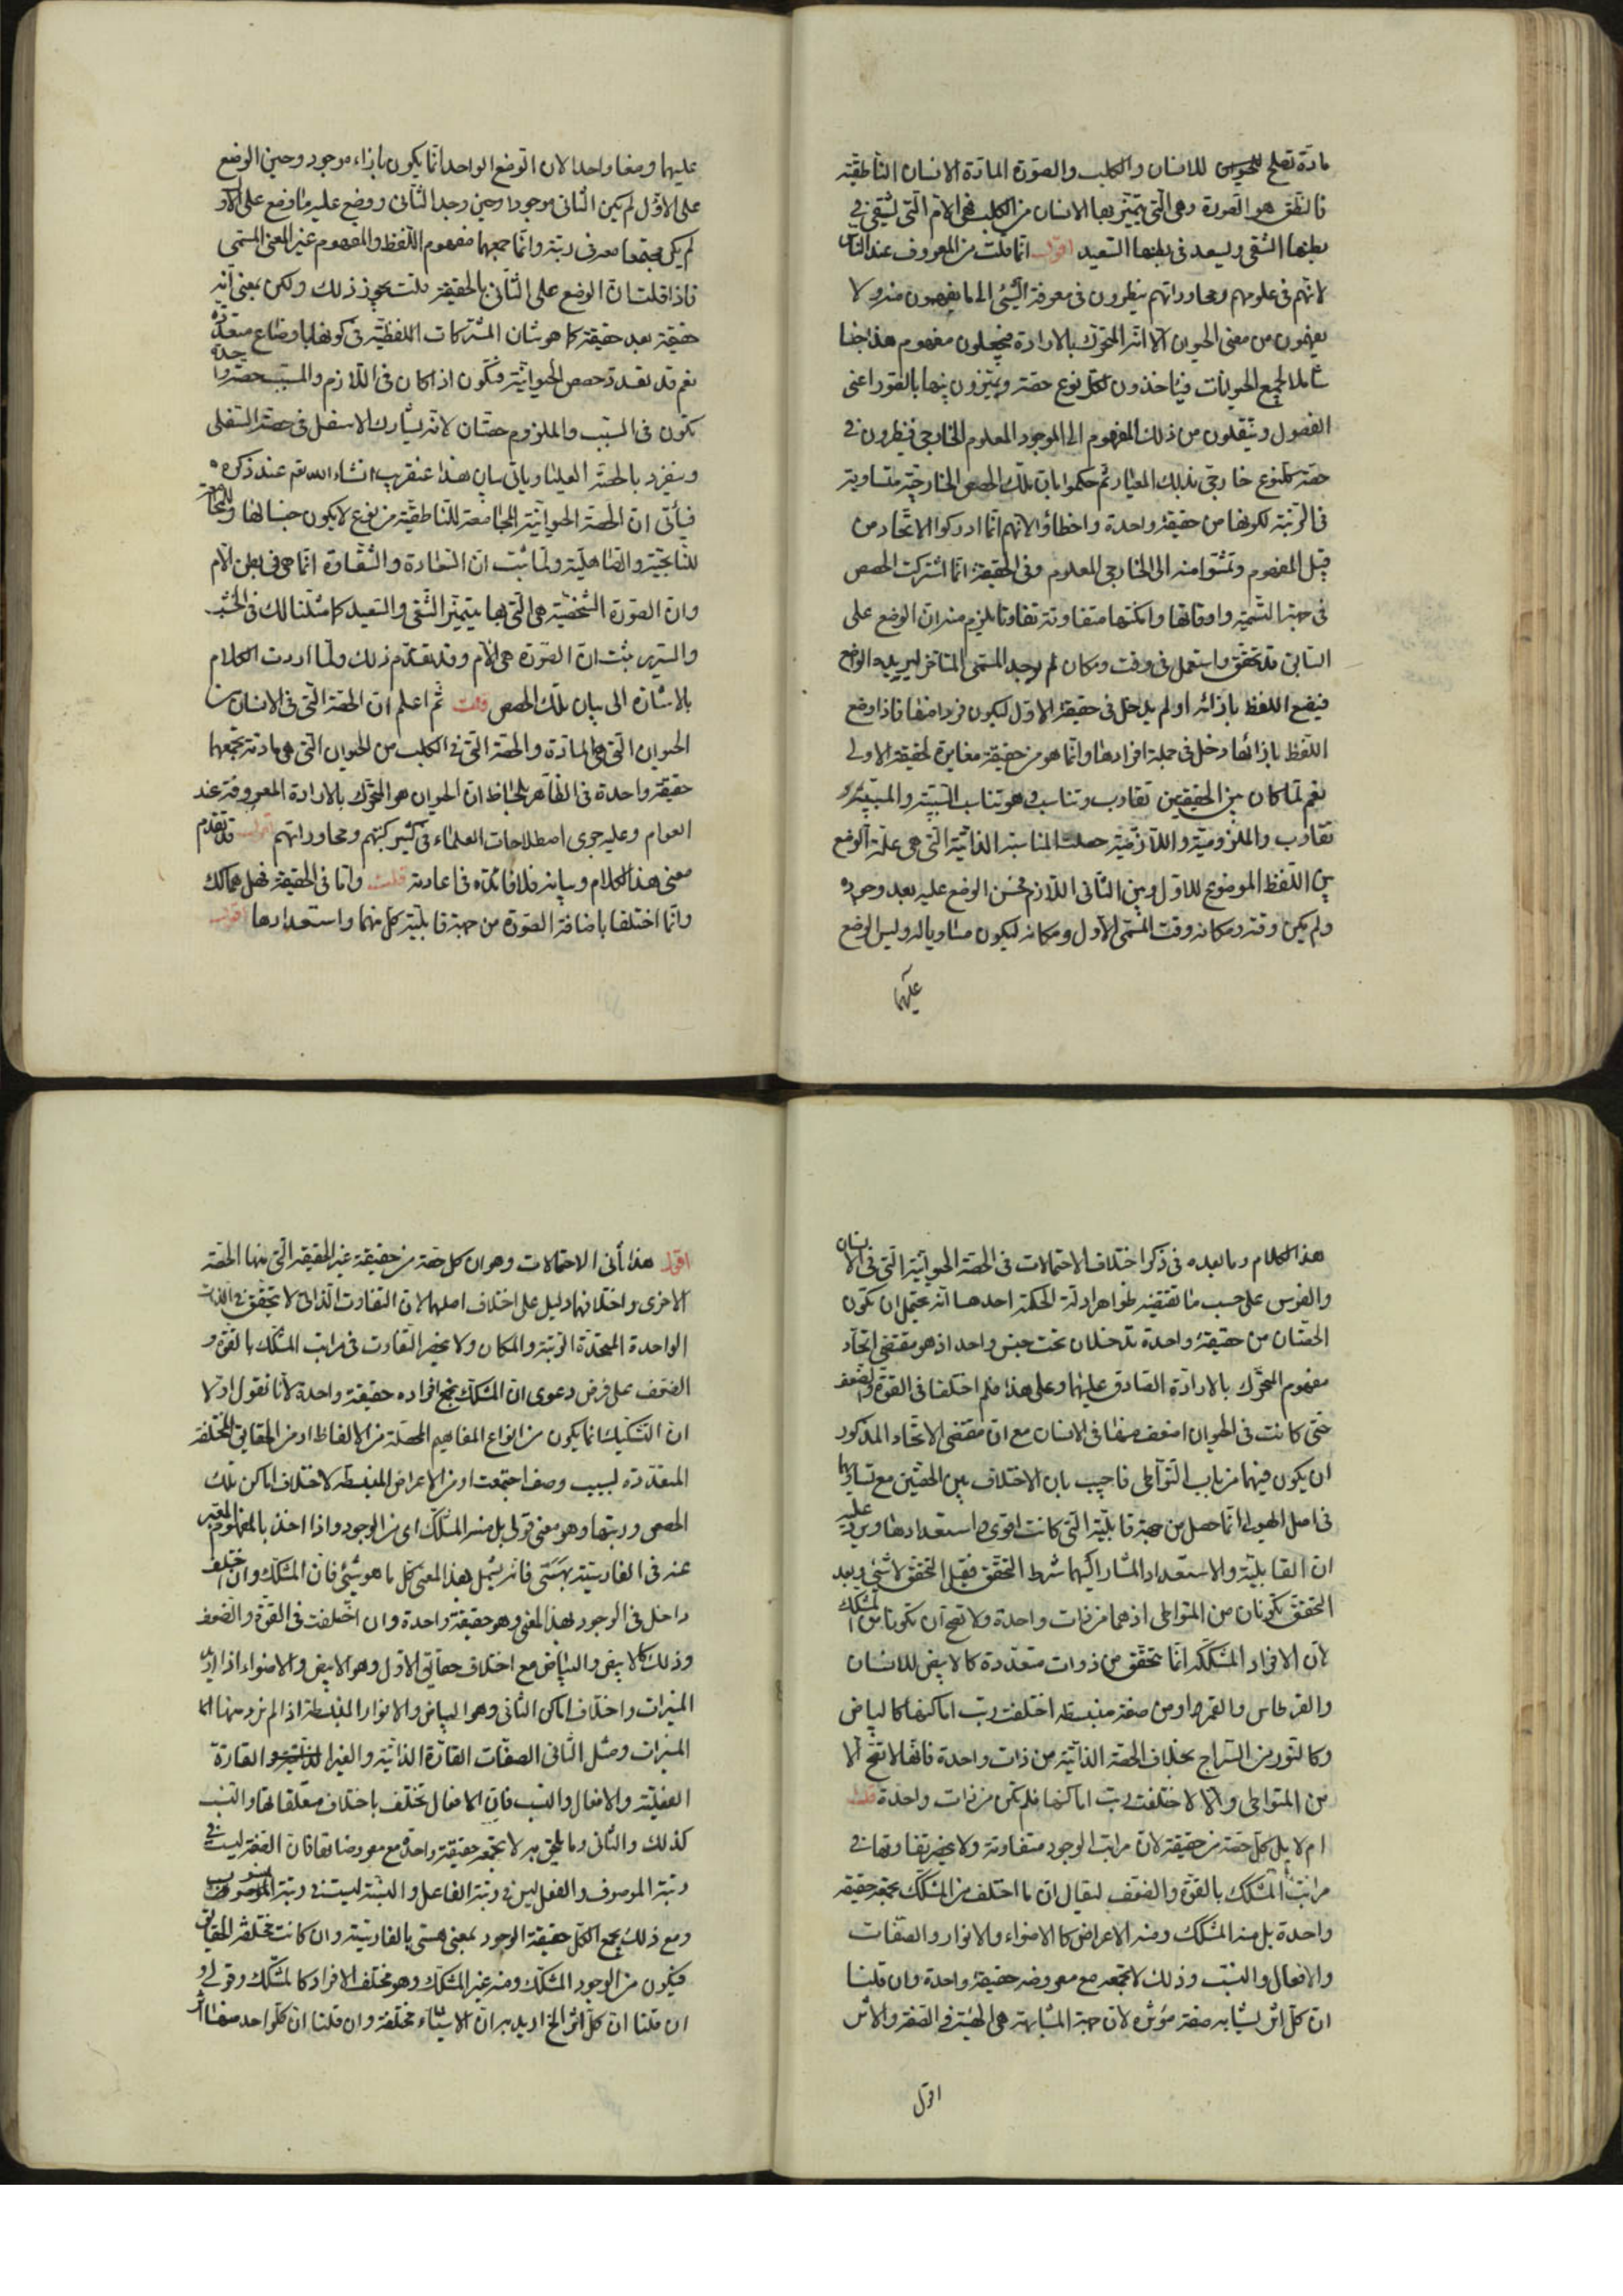 مادة تصلح للانسان والكلب والصورة المادة الانسان الناطقية
فالنطق هو الصورة وهى التى يتميز بها الانسان من الكلب فهى الام التى يشقى فى
بطنها الشقى ويسعد فى بطنها السعيد اقول انما قلت من المعروف عند الناس
لانهم فى علومهم ومحاوراتهم ينظرون فى معرفة الشئ الى ما يفهمون منه ولا
يفهمون من معنى الحيوان الا انه المتحرك بالارادة فيجعلون مفهوم هذا جنسا
شاملا لجميع الحيوانات فيأخذون لكل نوع حصة ويميزون بينها بالصور اعنى
الفصول وينتقلون من ذلك المفهوم الى الموجود المعلوم الخارجى فينظرون فى
حصة كل نوع خارجى بذلك المعيار ثم حكموا بان تلك الحصص الخارجية متساوية
فى الرتبة لكونها من حقيقة واحدة واخطاؤا لانهم انما ادركوا الاتحاد من
قبل المفهوم وتمشوا منه الى الخارجى المعلوم وفى الحقيقة انما اشتركت الحصص
فى جهة التسمية واوقاتها وامكنتها متفاوتة تفاوتا يلزم منه ان الوضع على
السابق قد تحقق واستعمل فى وقت ومكان لم يوجد المسمى المتاخر ليريده الواضع
فيضع اللفظ بازائه او لم يدخل فى حقيقة الاول ليكون فردا منها فاذا وضع
اللفظ بازائها دخل فى جملة افرادها وانما هو من حقيقة مغايرة لحقيقة الاولى
نعم لما كان بين الحقيقتين تقارب وتناسب وهو تناسب السببية والمسببية و
تقارب والملزومية واللازمية حصلت المناسبة الذاتية التى هى علة الوضع
بين اللفظ الموضوع للاول وبين الثانى اللازم فحسن الوضع عليه بعد وجوده
ولم يكن وقته ومكانه وقت المسمى الاول ومكانه ليكون مساويا له وليس الوضع
عليهما
عليهما وضعا واحدا لان الوضع الواحد انما يكون بازاء موجود وحين الوضع
على الاول لم يكن الثانى موجودا وحين وجد الثانى ووضع عليه ما وضع على الاول
لم يكن مجتمعا معه فى رتبته وانما جمعهما مفهوم اللفظ والمفهوم غير المعنى المسمى
فاذا قلت ان الوضع على الثانى بالحقيقة قلت يجوز ذلك ولكن بمعنى انه
حقيقة بعد حقيقة كما هو شان المشتركات اللفظية فى كونها باوضاع متعددة
نعم قد تعدد حصص الحيوانية فتكون اذا كان فى اللازم والمسبب حصة واحدة
تكون فى السبب والملزوم حصتان لانه يشارك الاسفل فى حصته السفلى
وينفرد بالحصة العليا وياتى بيان هذا عنقريب انشاء الله تعم عند ذكره
فيأتى ان الحصة الحيوانية المجامعة للناطقية من نوع لا يكون جنسا لها وللمجامعة
للنابحية والصاهلية ولما ثبت ان السعادة والشقاوة انما هى فى بطن الام
وان الصورة الشخصية هى التى بها يتميز الشقى والسعيد كما مثلنا لك فى الخشب
والسرير ثبت ان الصورة هى الام وقد تقدم ذلك ولما اردت الكلام
بالاشارة الى بيان تلك الحصص قلت ثم اعلم ان الحصة التى فى الانسان من
الحيوان التى هى المادة والحصة التى فى الكلب من الحيوان التى هى مادته تجمعهما
حقيقة واحدة فى الظاهر بلحاظ ان الحيوان هو المتحرك بالارادة المعروفة عند
العوام وعليه جرى اصطلاحات العلماء فى كثير كتبهم ومحاوراتهم اقول قد تقدم
معنى هذا الكلام وبيانه فلا فائدة فى اعادته قلت واما فى الحقيقة فهل هما كك
وانما اختلفا باضافة الصورة من جهة قابلية كل منهما واستعدادها اقول
هذا الكلام وما بعده فى ذكر اختلاف الاحتمالات فى الحصة الحيوانية التى فى الانسان
والفرس على حسب ما تقتضيه ظواهر ادلة الحكمة احدها انه يحتمل ان تكون
الحصتان من حقيقة واحدة تدخلان تحت جنس واحد اذ هو مقتضى اتحاد
مفهوم المتحرك بالارادة الصادق عليهما وعلى هذا فلم اختلفتا فى القوة والضعف
حتى كانت فى الحيوان اضعف منها فى الانسان مع ان مقتضى الاتحاد المذكور
ان يكون فيهما من باب التواطى فاجيب بان الاختلاف بين الحصتين مع تساويهما
فى اصل الهيولى انما حصل من جهة قابليته التى كانت اقوى واستعدادها ويرد عليه
ان القابلية والاستعداد المشار اليهما شرط التحقق فقبل التحقق لا شئ وبعد
التحقق تكونان من المتواطى اذ هما من ذات واحدة ولا تصح ان تكونا من المشكك
لان الافراد المشككة انما تتحقق من ذوات متعددة كالابيض للانسان
والقرطاس والقمر او من صفة منبسطة اختلفت رتب اماكنها كالبياض
وكالنور من السراج بخلاف الحصة الذاتية من ذات واحدة فانها لا تصح الا
من المتواطى والا لاختلفت رتب اماكنها فلم تكن من ذات واحدة قلت
ام لا بل كل حصة من حقيقة لان مراتب الوجود متفاوتة ولا يحضر تفاوتها فى
مراتب المشكك بالقوة والضعف ليقال ان ما اختلف من المشكك يجمعه حقيقة
واحدة بل منه المشكك ومنه الاعراض كالاضواء والانوار والصفات
والافعال والنسب وذلك لا تجمعه مع معروضه حقيقة واحدة وان قلنا
ان كل اثر يشابه صفة مؤثره لان جهة المشابهة هى الهيئة فى الصفة والاثر
اقول
اقول هذا ثانى الاحتمالات وهو ان كل حصة من حقيقة غير الحقيقة التى منها الحصة
الاخرى واختلافهما دليل على اختلاف اصلهما لان التفاوت الذاتى لا يتحقق فى الذات
الواحدة المتحدة الرتبة والمكان ولا يحضر التفاوت فى مراتب المشكك بالقوة و
الضعف على فرض دعوى ان المشكك يجمع افراده حقيقة واحدة لانا نقول اولا
ان التشكيك انما يكون من انواع المفاهيم المحصلة من الالفاظ او من الحقايق المختلفة
المتعددة لسبب وصف اجتمعت او من الاعراض المنبسطة لاختلاف اماكن تلك
الحصص ورتبها وهو معنى قولى بل منه المشكك اى من الوجود واذا اخذ بالمفهوم المعبر
عنه فى الفارسية بهستى فانه يشمل بهذا المعنى كل ما هو شئ فان المشكك وان اختلف
داخل فى الوجود بهذا المعنى وهو حقيقة واحدة وان اختلفت فى القوة والضعف
وذلك كالابيض والبياض مع اختلاف حقايق الاول وهو الابيض والاضواء اذا اريد
المنيرات واختلاف اماكن الثانى وهو البياض والانوار المنبسطة اذا لم نرد منها الا
المنيرات ومثل الثانى الصفات القارة الذاتية والغير القارة
الفعلية والافعال والنسب فان الافعال تختلف باختلاف متعلقاتها والنسب
كذلك والثانى وما يلحق به لا تجمعه حقيقة واحدة مع معروضاتها فان الصفة ليست فى
رتبة الموصوف والفعل ليس فى رتبة الفاعل والنسبة ليست فى رتبة المنسوب
ومع ذلك يجمع الكل حقيقة الوجود بمعنى هستى بالفارسية وان كانت مختلفة الحقايق
فيكون من الوجود المشكك ومنه غير المشكك وهو مختلف الافراد كالمشكك وقولى و
ان قلنا ان كل اثر الخ اريد به ان الاشياء مختلفة وان قلنا ان كل واحد منها اثر